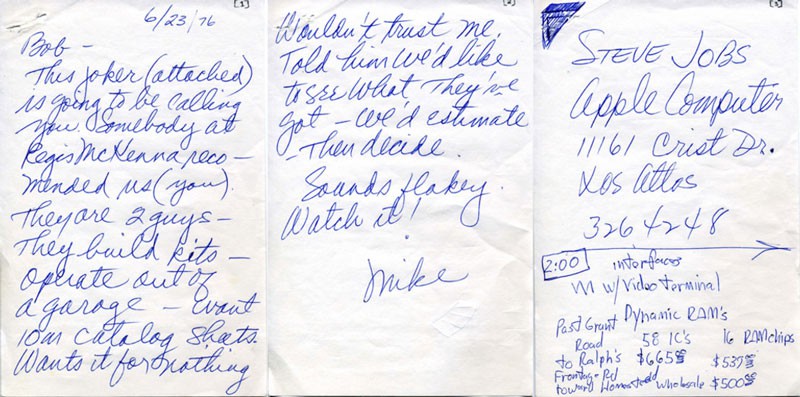 [1]
6/23/76
Bob —
This joker (attached)
is going to be calling
you. Somebody at
Regis McKenna reco—
mended us (you).
They are 2 guys —
They build kits —
operate out of
a garage — Want
10m catalog sheets.
Wants it for nothing
Wouldn't trust me.
Told him we'd like
to see what they've
got — we'd estimate
— Then decide.
Sounds flakey.
Watch it!
Mike
[3]
STEVE JOBS
Apple Computer
11161 Crist Dr.
Los Altos
326 4248
2:00 interfaces
w/Video Terminal
Dynamic RAM's
Past Grant
Road 58 IC's 16 RAM chips
to Ralph's $665 $537
Frontage Rd
toward Homestead Wholesale $500